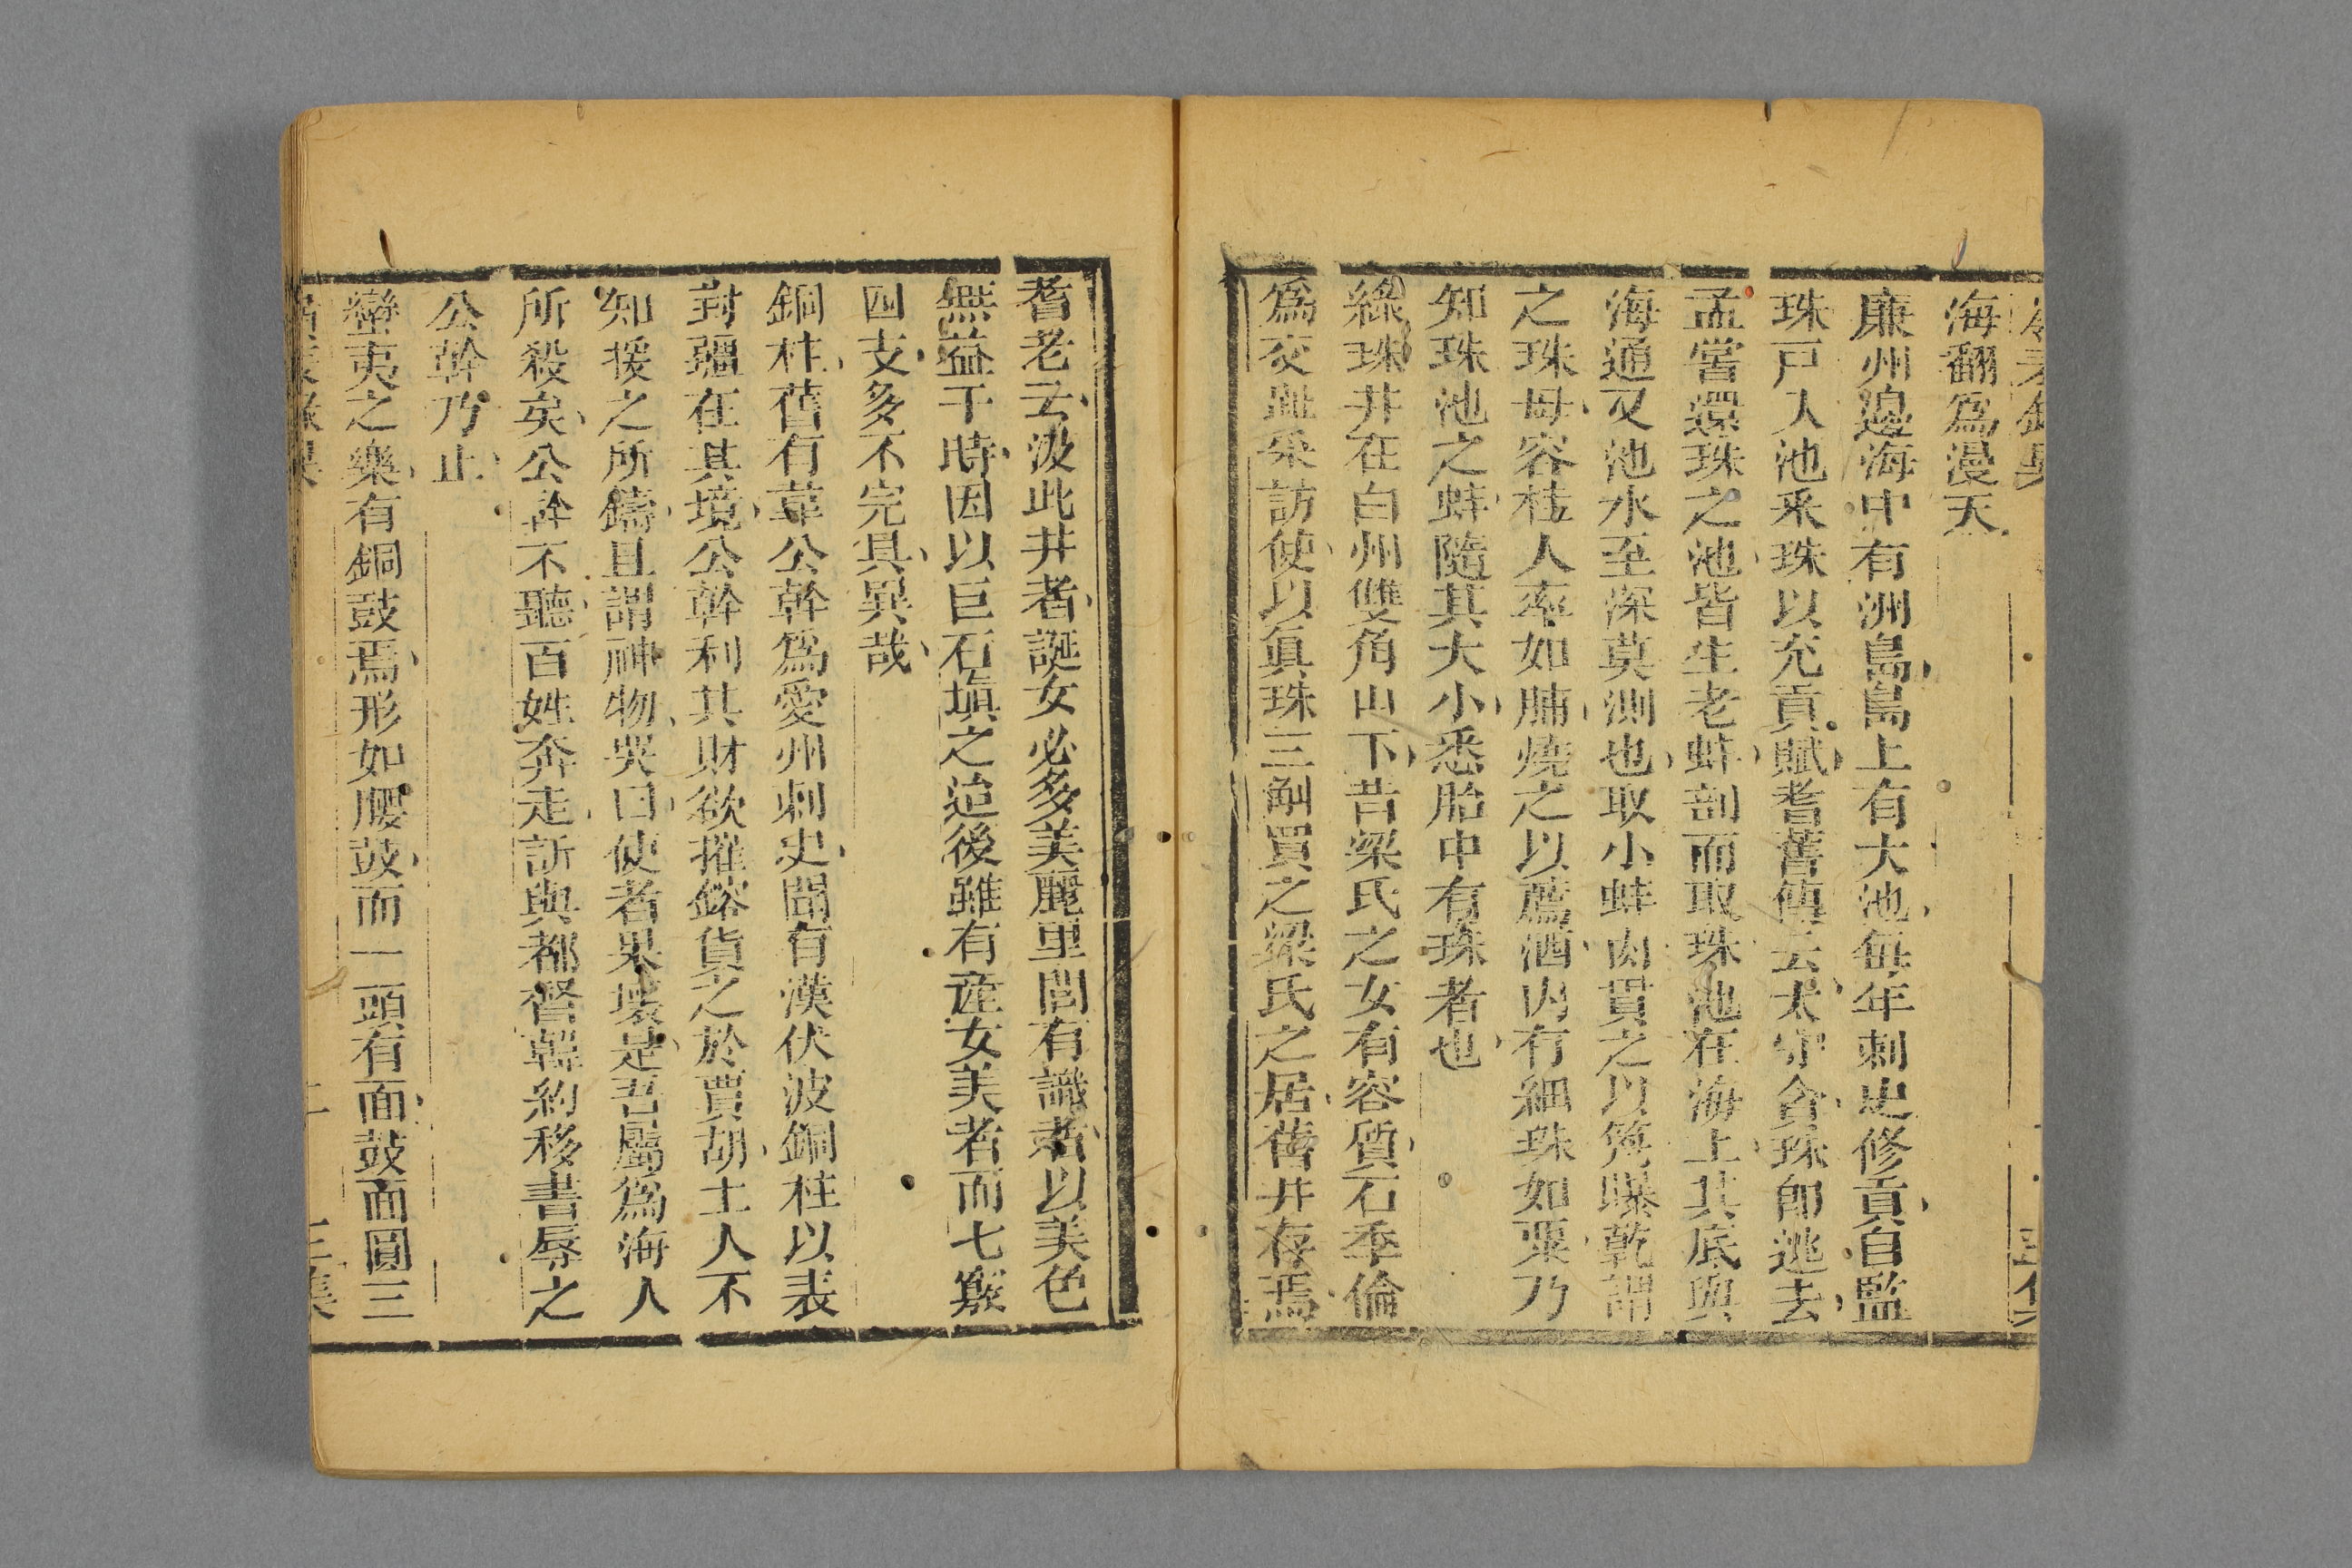 嶺表錄異
海翻爲漫天
廉州邉海中有洲島島上有大池每年刺史修貢自監
珠戸入池采珠以充貢賦耆舊傳云太守貪珠卽逃去
孟嘗還珠之池皆生老蚌剖而取珠池在海上其底與
海通又池水至深莫測也取小蚌肉貫之以篾曝乾謂
之珠母容桂人率如脯燒之以薦酒内有細珠如粟乃
知珠池之蚌隨其大小悉胎中有珠者也
綠珠井在白州雙角山下昔梁氏之女有容質石季倫
爲交趾采訪使以眞珠三斛買之梁氏之居舊井存焉
耆老云汲此井者誕女必多美麗里閭有識者以美色
無益于時因以巨石塡之迨後雖有産女美者而七竅
四支多不完具異哉
銅柱舊有韋公幹爲愛州刺史聞有漢伏波銅柱以表
封疆在其境公幹利其財欲摧鎔貨之於賈胡土人不
知援之所鑄且謂神物哭曰使者果壞是吾屬爲海人
所殺矣公幹不聽百姓奔走訴與都督韓約移書辱之
公幹乃止
蠻夷之樂有銅鼓焉形如腰鼓而一頭有面鼓面圓三
嶺表錄異 三集